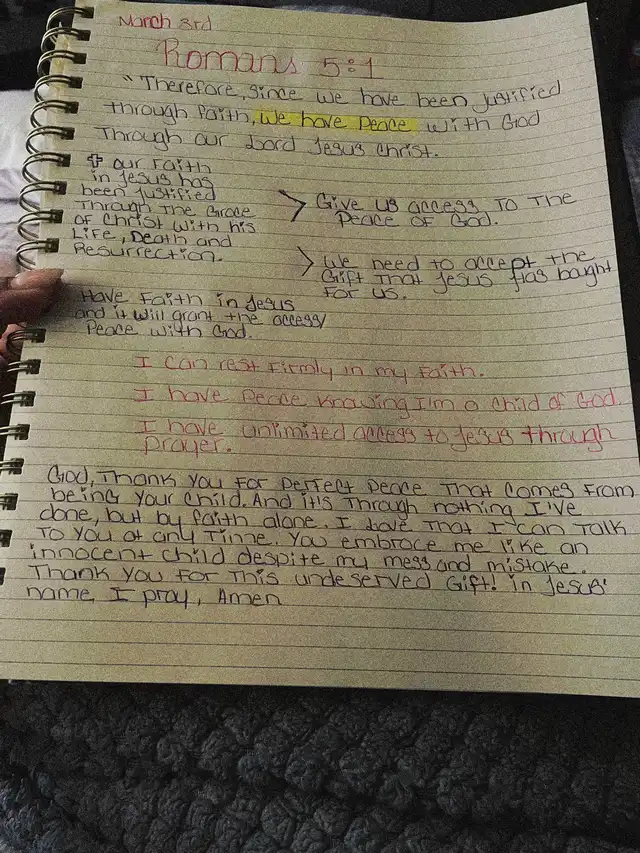 March 3rd
Romans 5:1
"Therefore, since we have been justified
through faith, we have peace with God
Through our Lord Jesus Christ.
our Faith
in Jesus has
been justified
Through The Grace
of Christ with his
Life, Death and
Resurrection.
> Give us access To The
Peace of God.
> We need to accept the
Gift That Jesus Has bought
For us.
Have Faith in Jesus
and it will grant the access/
Peace with God.
I can rest Firmly in my Faith.
I have peace knowing I'm a child of God.
I have unlimited access to Jesus through
prayer.
God, Thank you For perfect peace That comes From
being your child. And it's Through nothing I've
done, but by faith alone. I love That I can Talk
To you at any Time. You embrace me like an
innocent child despite my mess and mistake.
Thank you For This undeserved Gift! in Jesus'
name I pray, Amen